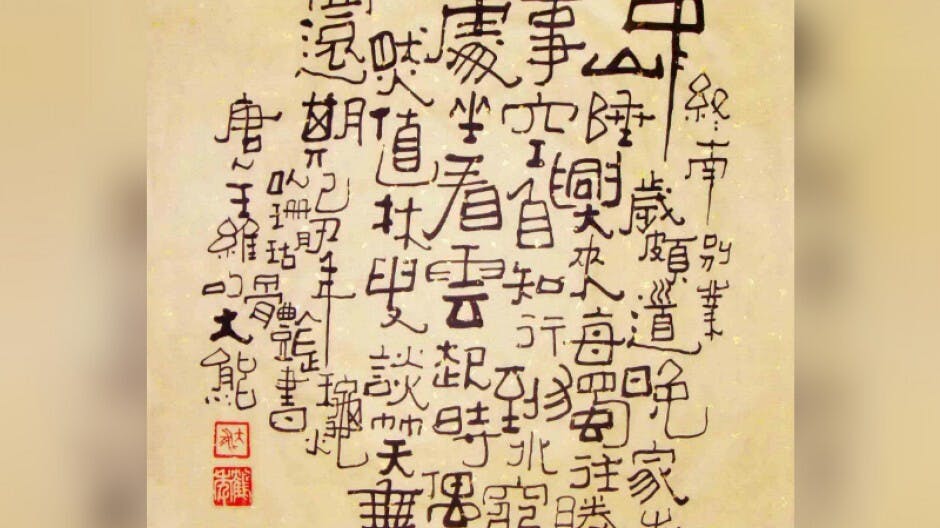 終南别業
中歲頗道晚家
山陲興來每獨往勝
事空自知行到水窮
處坐看雲起時偶
然值林叟談笑無
還期己丑年
體書
唐人王維句大熊